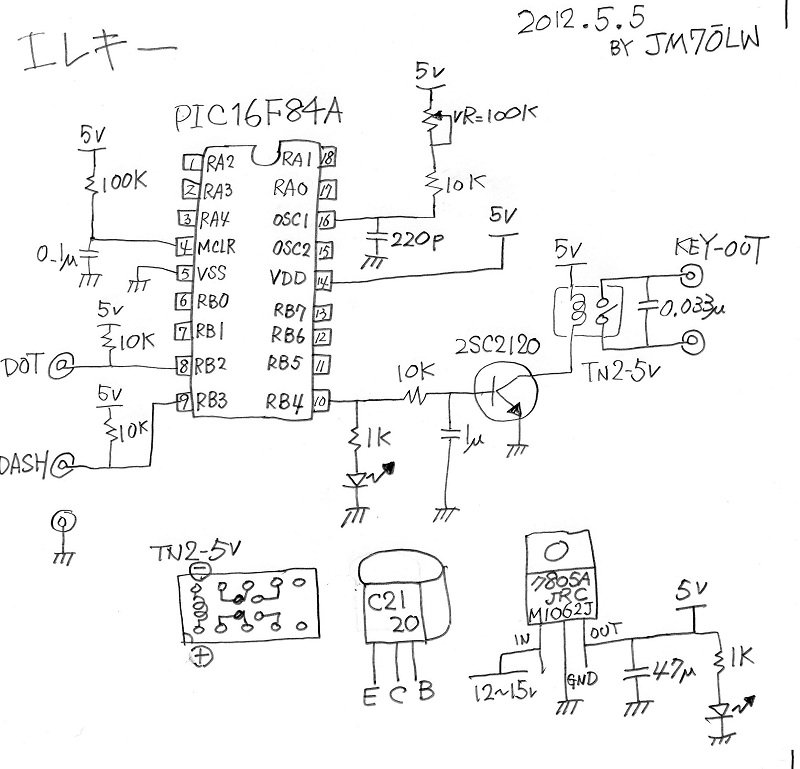 2012.5.5
BY JM7OLW
エレキー
PIC16F84A
5V
VR=100K
10K
5V
100K
0.1μ
1 RA2
2 RA3
3 RA4
4 MCLR
5 VSS
6 RB0
7 RB1
8 RB2
9 RB3
RA1 18
RA0 17
OSC1 16
OSC2 15
VDD 14
RB7 13
RB6 12
RB5 11
RB4 10
220P
5V
5V
KEY-OUT
0.033μ
TN2-5V
5V
10K
DOT
5V
10K
DASH
2SC2120
10K
1K
1μ
TN2-5V
−
+
C21
20
E C B
7805A
JRC
M1062J
IN
OUT
GND
12~15V
47μ
5V
1K